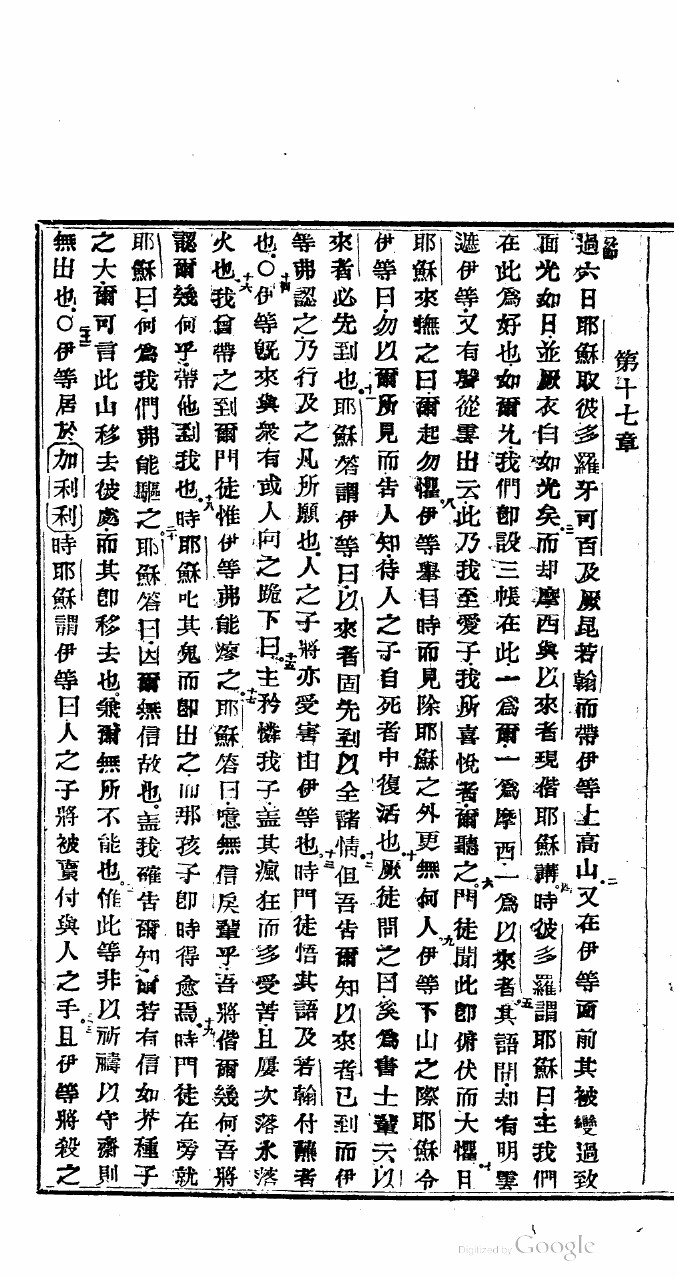 第十七章
節過六日耶穌取彼多羅牙可百及厥昆若翰而帶伊等上高山二又在伊等面前其被變過致
面光如日並厥衣白如光矣三而却摩西與以來者現偕耶穌講時四彼多羅謂耶穌曰主我們
在此為好也如爾允我們即設三帳在此一為爾一為摩西一為以來者五其語間却有明雲
遮伊等又有聲從雲出云此乃我至愛子我所喜悅者爾聽之六門徒聞此即俯伏而大懼七
耶穌來撫之曰爾起勿懼八伊等舉目時而見除耶穌之外更無何人九伊等下山之際耶穌令
伊等曰勿以爾所見而告人知待人之子自死者中復活也十厥徒問之曰奚為書士輩云以
來者必先到也十一耶穌答謂伊等曰以來者固先到以全諸情十二但吾告爾知以來者已到而伊
等弗認之乃行及之凡所願也人之子將亦受害由伊等也十三時門徒悟其語及若翰付蘸者
也○十四伊等既來與衆有或人向之跪下曰十五主矜憐我子盖其瘋狂而多受苦且屢次落水落
火也十六我曾帶之到爾門徒惟伊等弗能療之十七耶穌答曰噫無信戾輩乎吾將偕爾幾何吾將
認爾幾何乎帶他到我也十八時耶穌叱其鬼而即出之而那孩子即時得愈焉十九時門徒在旁就
耶穌曰何為我們弗能驅之二十耶穌答曰因爾無信故也盖我確告爾知爾若有信如芥種子
之大爾可言此山移去彼處而其即移去也兼爾無所不能也惟此等非以祈禱以守齋則
無出也○伊等居於加利利時耶穌謂伊等曰人之子將被賣付與人之手二三且伊等將殺之
Digitized by Google